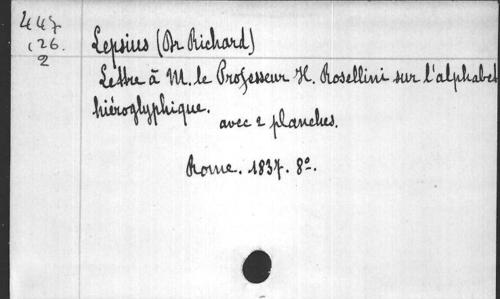 447
126.
2
Lepsius (Dr Richard)
Lettre à M. le Professeur H. Rosellini sur l'alphabet
hiéroglyphique.
avec 2 planches.
Rome. 1837. 8º.